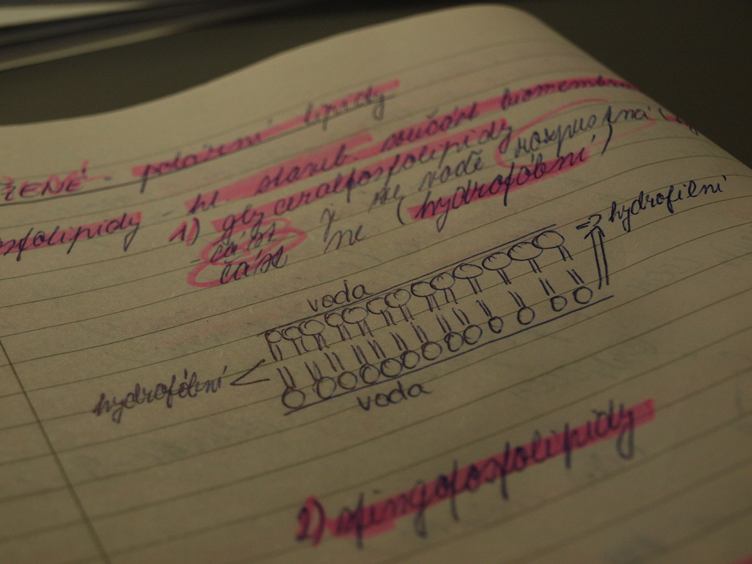 ŽENÉ - polární lipidy
osfolipidy - hl. staveb. součást biomembrán
1) glyceralfosfolipidy
- část je ve vodě rozpustná
část ne (hydrofóbní)
→ hydrofilní
voda
hydrofóbní
voda
2) sfingofosfolipidy